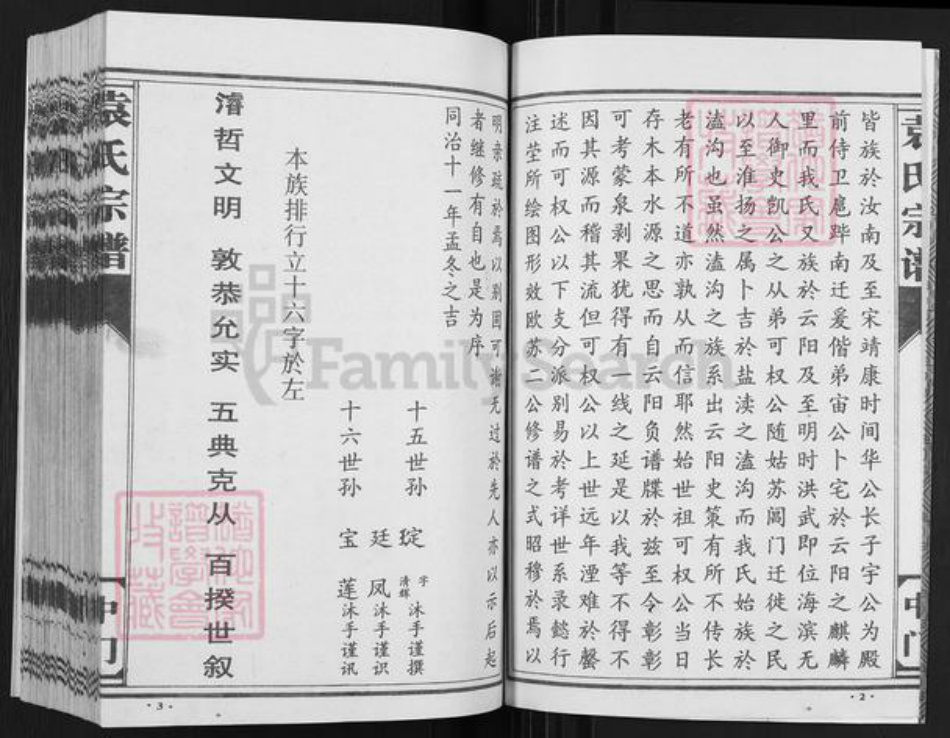 袁氏宗谱
中门
皆族於汝南及至宋靖康时间华公长子宇公为殿
前侍卫扈跸南迁爰偕弟宙公卜宅於云阳之麒麟
里而我氏又族於云阳及至明时洪武即位海滨无
人御史凯公之从弟可权公随姑苏阊门迁徙之民
以至淮扬之属卜吉於盐渎之溘沟而我氏始族於
溘沟也虽然溘沟之族系出云阳史策有所不传长
老有所不道亦孰从而信耶然始世祖可权公当日
存木本水源之思而自云阳负谱牒於兹至今彰彰
可考蒙泉剥果犹得有一线之延是以我等不得不
因其源而稽其流但可权公以上世远年湮难於罄
述而可权公以下支分派别易於考详世系录懿行
注茔所绘图形效欧苏二公修谱之式昭穆於焉以
明亲疏於焉以别固可谢无过於先人亦以示后起
者继修有自也是为序
同治十一年孟冬之吉
十五世孙 琔 字清辉 沐手谨撰
廷凤 沐手谨识
十六世孙 宝莲 沐手谨讯
本族排行立十六字於左
濬哲文明 敦恭允实 五典克从 百揆世叙
袁氏宗谱
中门
·2·
·3·
FamilySearch